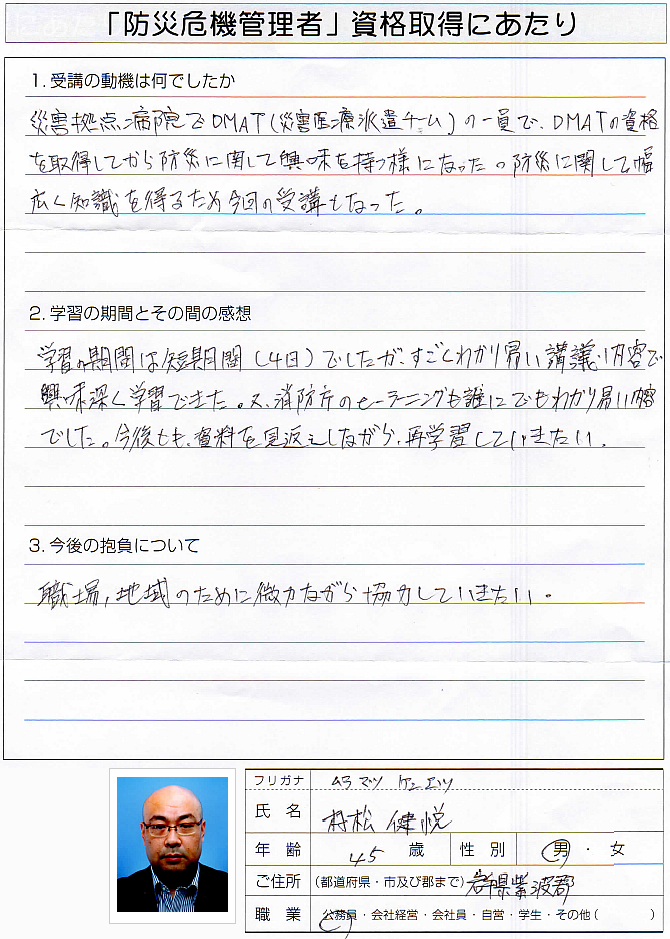 「防災危機管理者」資格取得にあたり
1. 受講の動機は何でしたか
災害拠点病院でDMAT(災害医療派遣チーム)の一員で、DMATの資格
を取得してから防災に関して興味を持つ様になった。防災に関して幅
広く知識を得るため今回の受講となった。
2. 学習の期間とその間の感想
学習の期間は短期間(4日)でしたが、すごくわかり易い講議内容で
興味深く学習できた。又、消防庁のe-ラーニングも誰にでもわかり易い内容
でした。今後とも、資料を見返えしながら、再学習していきたい。
3. 今後の抱負について
職場,地域のために微力ながら協力していきたい。
フリガナ ムラマツ ケンエツ
氏 名 村松 健悦
年 齢 45 歳 性 別 男・女
ご住所 (都道府県・市及び郡まで) 岩手県紫波郡
職 業 公務員・会社経営・会社員・自営・学生・その他( )